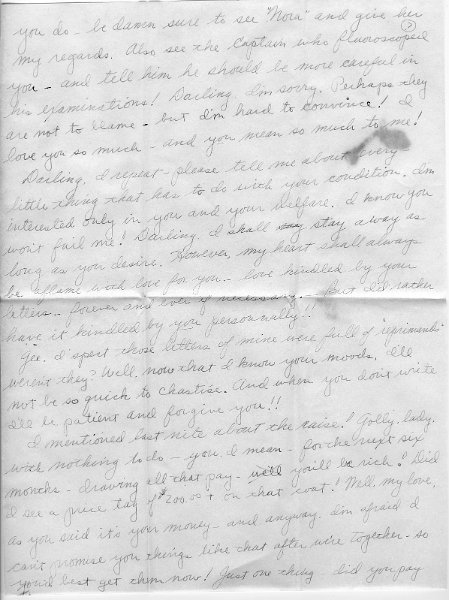 2
you do - be damn sure to see "Nora" and give her
my regards. Also see the Captain who fluoroscoped
you - and tell him he should be more careful in
his examinations! Darling, I'm sorry. Perhaps they
are not to blame - but I'm hard to convince! I
love you so much - and you mean so much to me!
Darling, I repeat - please tell me about every
little thing that has to do with your condition. I'm
interested only in you and your welfare. I know you
won't fail me! Darling, I shall stay away as
long as you desire. However, my heart shall always
be aflame with love for you - love kindled by your
letters - forever and ever if necessary - But I'd rather
have it kindled by you personally!!
Gee, I spect those letters of mine were full of "reprimands"
weren't they? Well, now that I know your moods, I'll
not be so quick to chastise. And when you don't write
I'll be patient and forgive you!!
I mentioned last nite about the raise! Golly, lady,
with nothing to do - you, I mean - for the next six
months - drawing all that pay - you'll be rich! Did
I see a price tag of $200.00 + on that coat! Well, my love,
as you said it's your money - and anyway, I'm afraid I
can't promise you things like that after we're together - so
you'd best get them now! Just one thing - did you pay